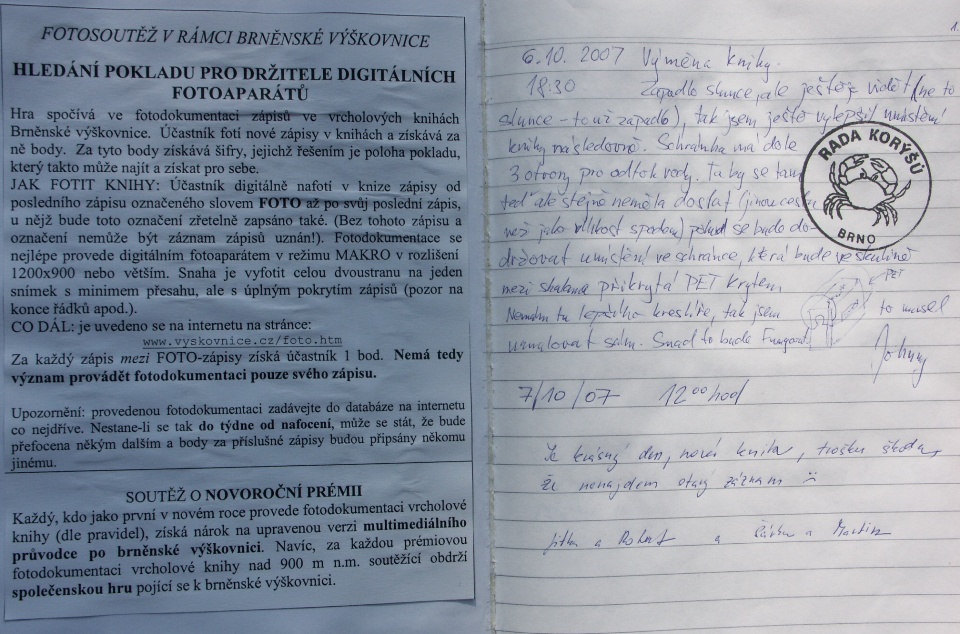 FOTOSOUTĚŽ V RÁMCI BRNĚNSKÉ VÝŠKOVNICE
HLEDÁNÍ POKLADU PRO DRŽITELE DIGITÁLNÍCH
FOTOAPARÁTŮ
Hra spočívá ve fotodokumentaci zápisů ve vrcholových knihách
Brněnské výškovnice. Účastník fotí nové zápisy v knihách a získává za
ně body. Za tyto body získává šifry, jejichž řešením je poloha pokladu,
který takto může najít a získat pro sebe.
JAK FOTIT KNIHY: Účastník digitálně nafotí v knize zápisy od
posledního zápisu označeného slovem FOTO až po svůj poslední zápis,
u nějž bude toto označení zřetelně zapsáno také. (Bez tohoto zápisu a
označení nemůže být záznam zápisů uznán!). Fotodokumentace se
nejlépe provede digitálním fotoaparátem v režimu MAKRO v rozlišení
1200x900 nebo větším. Snaha je vyfotit celou dvoustranu na jeden
snímek s minimem přesahu, ale s úplným pokrytím zápisů (pozor na
konce řádků apod.).
CO DÁL: je uvedeno se na internetu na stránce:
www.vyskovnice.cz/foto.htm
Za každý zápis mezi FOTO-zápisy získá účastník 1 bod. Nemá tedy
význam provádět fotodokumentaci pouze svého zápisu.
Upozornění: provedenou fotodokumentaci zadávejte do databáze na internetu
co nejdříve. Nestane-li se tak do týdne od nafocení, může se stát, že bude
přefocena někým dalším a body za příslušné zápisy budou připsány někomu
jinému.
SOUTĚŽ O NOVOROČNÍ PRÉMII
Každý, kdo jako první v novém roce provede fotodokumentaci vrcholové
knihy (dle pravidel), získá nárok na upravenou verzi multimediálního
průvodce po brněnské výškovnici. Navíc, za každou prémiovou
fotodokumentaci vrcholové knihy nad 900 m n.m. soutěžící obdrží
společenskou hru pojící se k brněnské výškovnici.
1.
6.10. 2007 Výměna knihy.
18:30 Zapadlo slunce, ale ještě je vidět (ne to
slunce - to už zapadlo), tak jsem ještě vylepšil umístění
knihy následovně. Schránka má dole
3 otvory pro odtok vody. Ta by se tam
teď ale stejně neměla dostat (jinou cestou
než jako vlhkost spodem) pokud se bude do-
držovat umístění ve schránce, která bude ve skulině
mezi skalama přikrytá PET krytem
Nemám tu lepšího kreslíře, tak jsem to musel
namalovat sám. Snad to bude fungovat.
PET
Johny
RADA KORÝŠŮ
BRNO
7/10/07 12 00 hod
Je krásný den, nová kniha, trošku škoda,
že nenajdem starý záznam
Jitka a Robert a Šárka a Martin